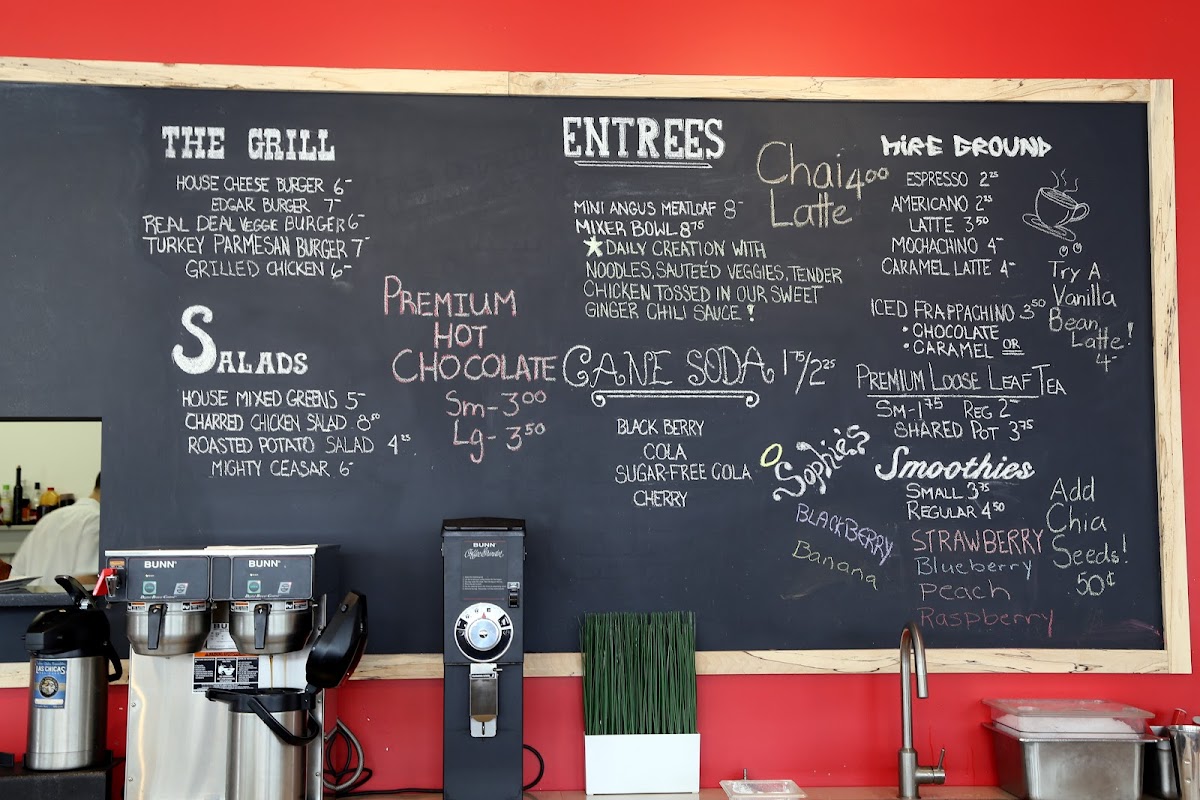 THE GRILL
HOUSE CHEESE BURGER 6-
EDGAR BURGER 7-
REAL DEAL VEGGIE BURGER 6-
TURKEY PARMESAN BURGER 7-
GRILLED CHICKEN 6-
SALADS
HOUSE MIXED GREENS 5-
CHARRED CHICKEN SALAD 8.50
ROASTED POTATO SALAD 4.25
MIGHTY CEASAR 6-
PREMIUM
HOT
CHOCOLATE
Sm-3.00
Lg-3.50
ENTREES
MINI ANGUS MEATLOAF 8-
MIXER BOWL 8.75
★DAILY CREATION WITH
NOODLES, SAUTEÉD VEGGIES, TENDER
CHICKEN TOSSED IN OUR SWEET
GINGER CHILI SAUCE!
Chai 4.00
Latte
CANE SODA 1.75/2.25
BLACK BERRY
COLA
SUGAR-FREE COLA
CHERRY
HIRE GROUND
ESPRESSO 2.25
AMERICANO 2.25
LATTE 3.50
MOCHACHINO 4-
CARAMEL LATTE 4-
ICED FRAPPACHINO 3.50
• CHOCOLATE
• CARAMEL OR
Try A
Vanilla
Bean
Latte!
4-
PREMIUM LOOSE LEAF TEA
SM-1.75 REG 2-
SHARED POT 3.75
Sophie's
Smoothies
SMALL 3.75
REGULAR 4.50
BLACKBERRY
Banana
STRAWBERRY
Blueberry
Peach
Raspberry
Add
Chia
Seeds!
50¢
BUNN
BUNN
BUNN
LAS CHICAS